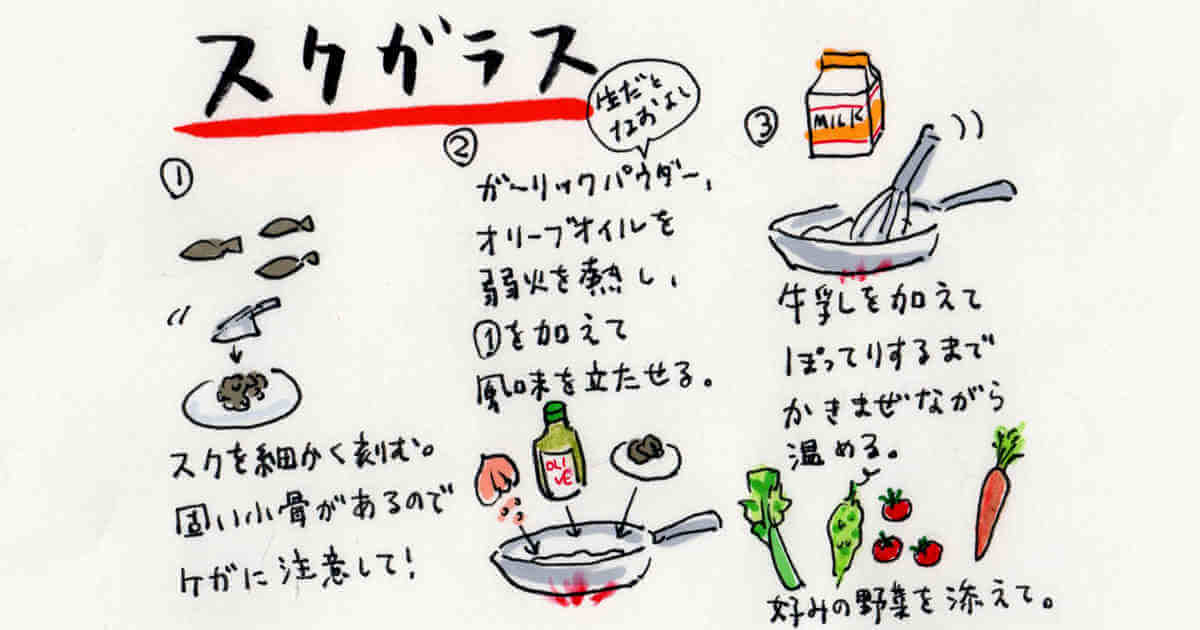 スクガラス
①
スクを細かく刻む。
固い小骨があるので
ケガに注意して!
②
生だと
なおよし
ガーリックパウダー、
オリーブオイルを
弱火を熱し、
①を加えて
風味を立たせる。
OLI
VE
③
MILK
牛乳しを加えて
ぽってりするまで
かきまぜながら
温める。
好みの野菜を添えて。